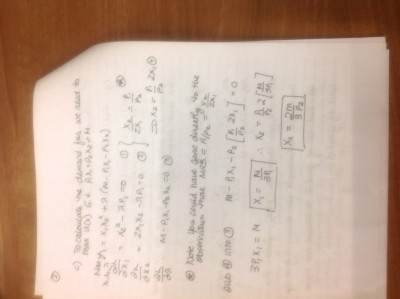 ②
c) To calculate the demand fns we need to
max u(x) s.t. P₁x₁+P₂x₂=M
Max y = x₁x₂² + λ(M-P₁x₁-P₂x₂)
x₁,x₂,λ
∂L/∂x₁ = x₂² - λP₁ = 0 ①
∂L/∂x₂ = 2x₁x₂ - λP₂ = 0 ②
} x₂/2x₁ = P₁/P₂ ⊛
⇒ x₂ = P₁/P₂ 2x₁ ④
∂L/∂λ M-P₁x₁-P₂x₂=0 ③
⊛ Note you could have gone directly to the
observation that MRS = P₁/P₂ = x₂/2x₁
Sub ④ into ③ M-P₁x₁-P₂[P₁/P₂ 2x₁]=0
3P₁x₁ = M x₁ = M/3P₁ ∴ x₂ = P₁/P₂ 2[M/3P₁]
x₂ = 2M/3P₂